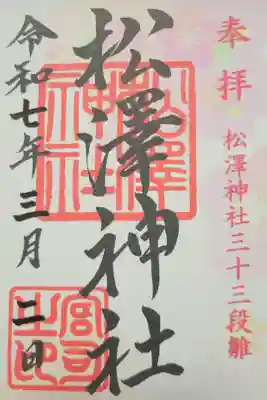 奉拝
松澤神社三十三段雛
松澤神社
令和七年三月二日
松澤神社
宮司之印